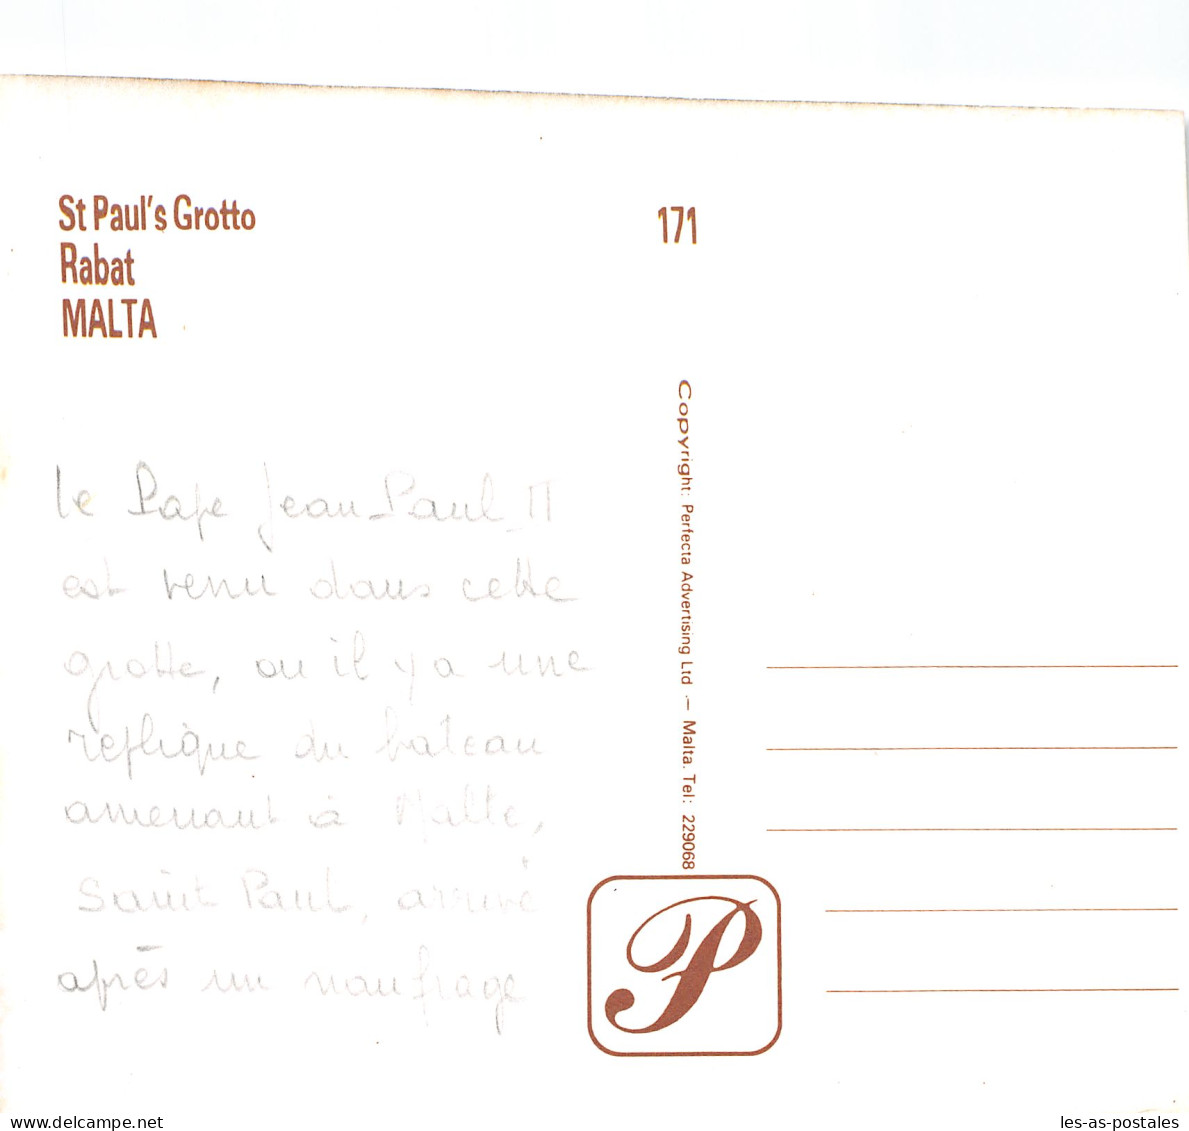 St Paul's Grotto
Rabat
MALTA
171
le Pape Jean-Paul II
est venu dans cette
grotte, ou il y a une
replique du bateau
amenant à Malte,
Saint Paul, arrivé
après un naufrage
Copyright: Perfecta Advertising Ltd — Malta. Tel: 229068
P
delcampe.net
les-as-postales